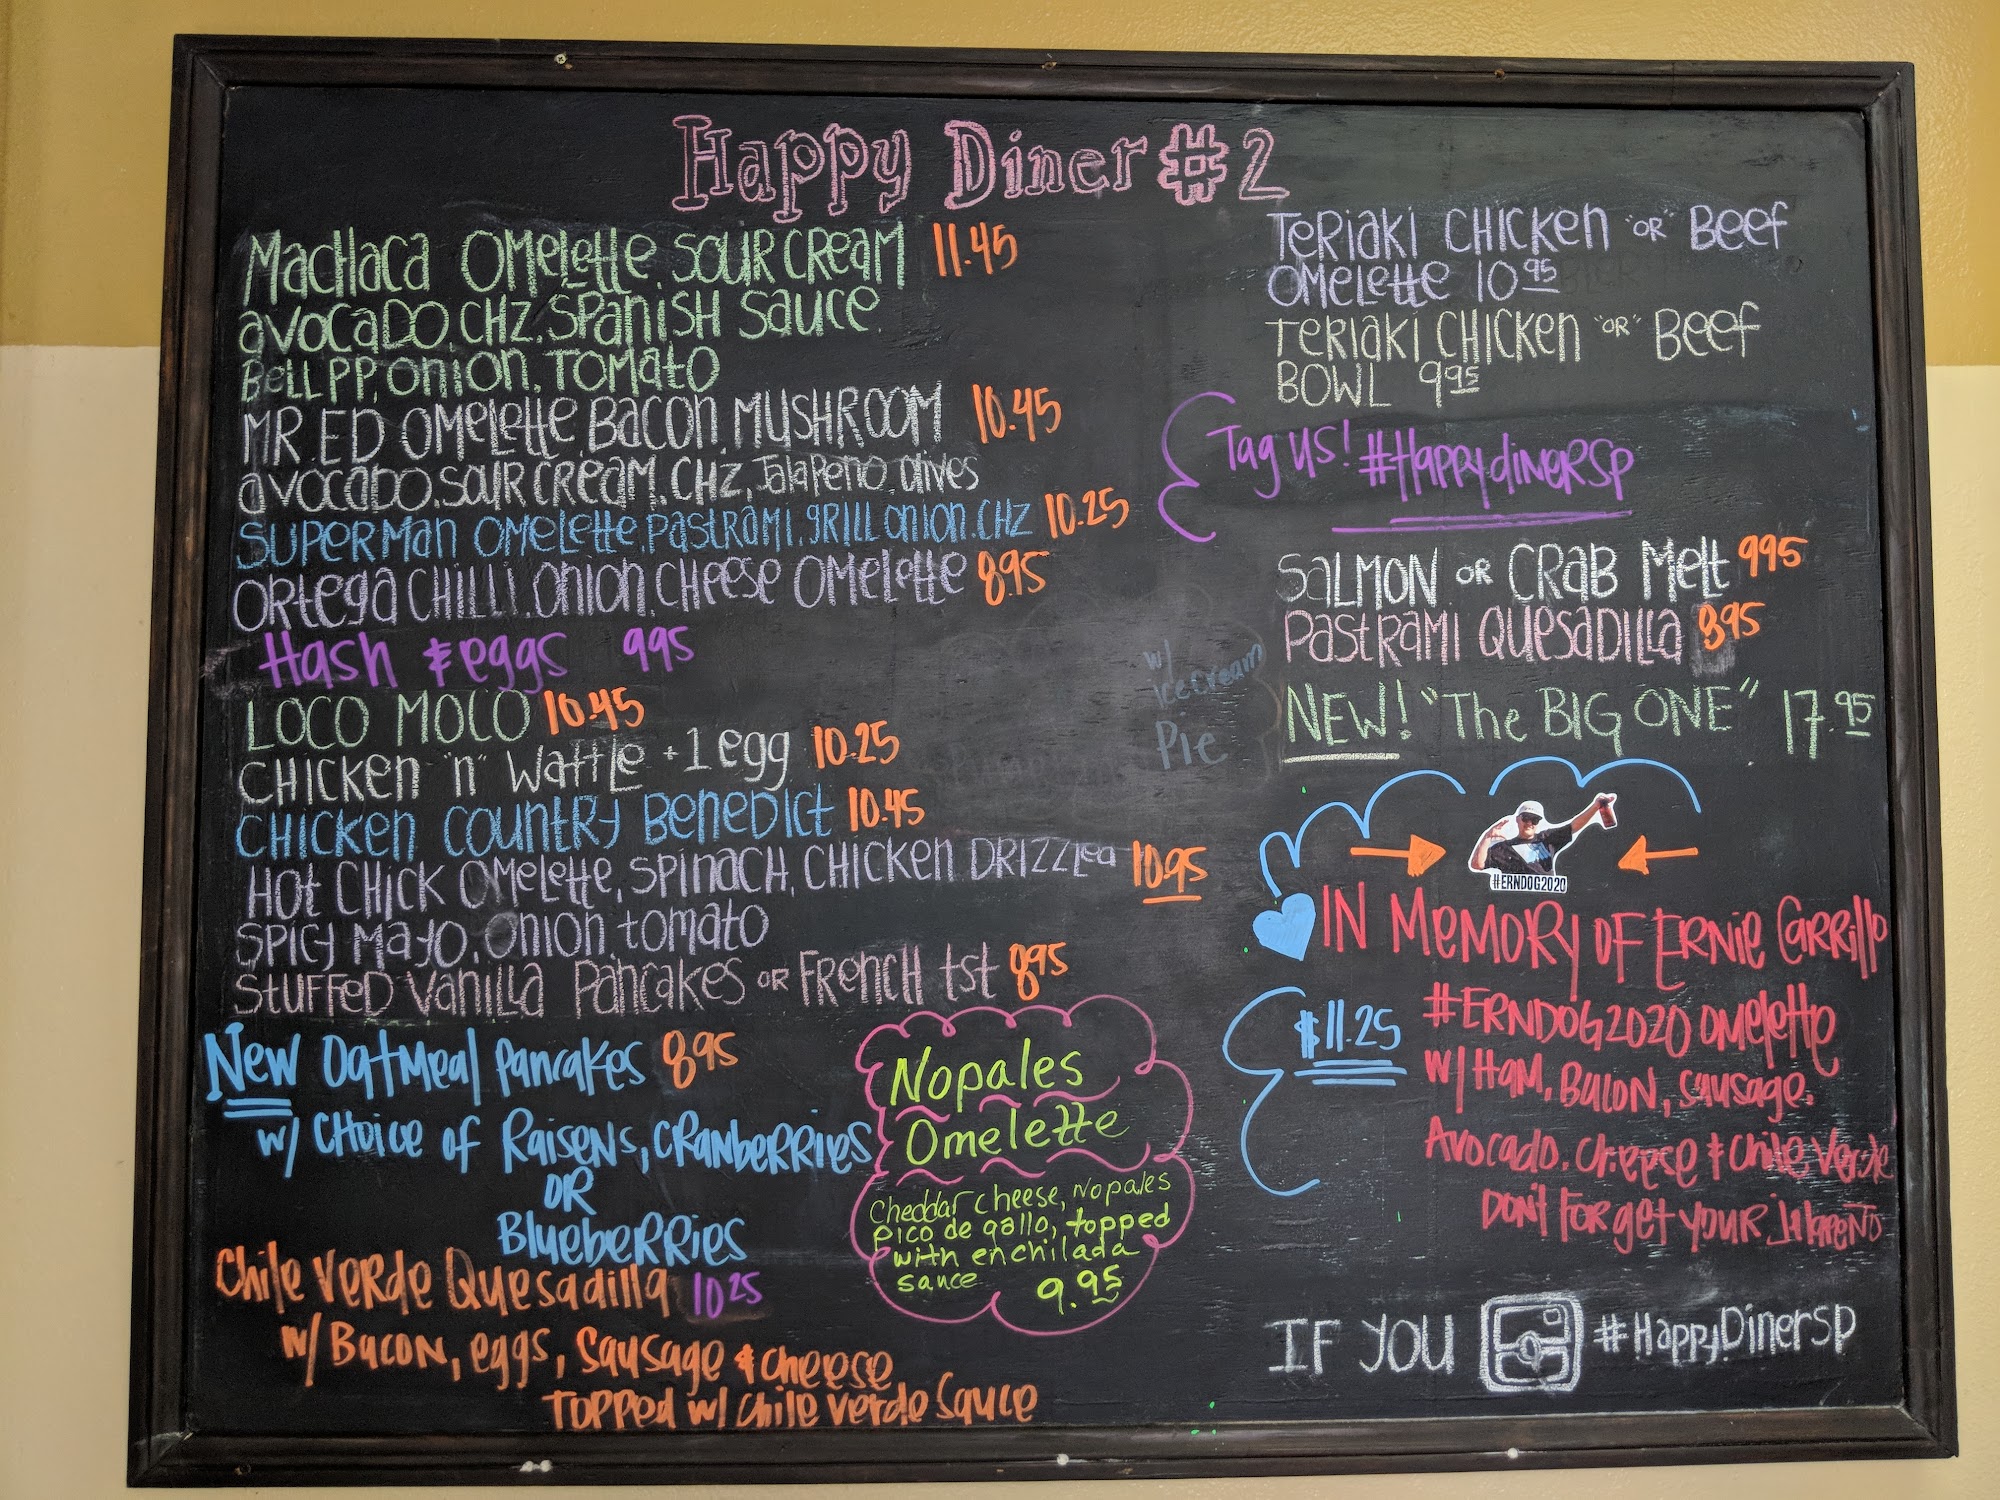 Happy Diner #2
Machaca Omelette, Sour Cream 11.45
Avocado, Chz, Spanish Sauce,
Bell PP, Onion, Tomato
Mr. Ed Omelette, Bacon, Mushroom 10.45
Avocado, Sour Cream, Chz, Jalapeno, Olives
Superman Omelette, Pastrami, Grill Onion, Chz 10.25
Ortega Chilli, Onion, Cheese Omelette 8.95
Hash & eggs 995
Loco Moco 10.45
Chicken "n" Waffle +1 egg 10.25
Chicken Country Benedict 10.45
Hot Chick Omelette, Spinach, Chicken Drizzled 10.95
Spicy Mayo, Onion, Tomato
Stuffed Vanilla Pancakes or French tst 895
New Oatmeal Pancakes 895
w/ Choice of Raisens, Cranberries
OR
Blueberries
Chile Verde Quesadilla 1025
w/ Bacon, eggs, Sausage & cheese
Topped w/ Chile Verde Sauce
Nopales
Omelette
Cheddar cheese, Nopales
pico de gallo, topped
with enchilada
sauce 9.95
w/
Ice Cream
Pie
Teriaki Chicken "or" Beef
Omelette 10 95
Teriaki Chicken "or" Beef
Bowl 9 95
Tag us! #Happydinersp
Salmon or Crab Melt 995
Pastrami Quesadilla 895
NEW! "The BIG ONE" 17.95
#ERNDOG2020
IN Memory of Ernie Carrillo
$11.25 #ERNDOG2020 Omelette
w/ Ham, Bacon, Sausage,
Avocado, Cheese & Chile Verde
Don't Forget your Jalapeno
IF YOU #HappyDinerSP